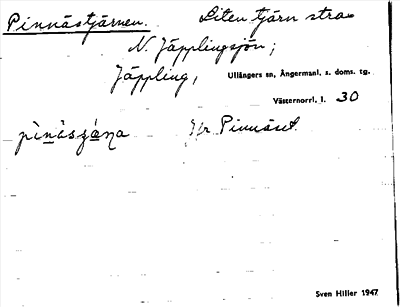 Pinnästjärnen. Liten tjärn strax
N. Jäpplingsjön;
Jäppling, Ullångers sn, Ångermanl. s. doms. tg.
Västernorrl. l. 30
Pinnäset
Sven Hiller 1947